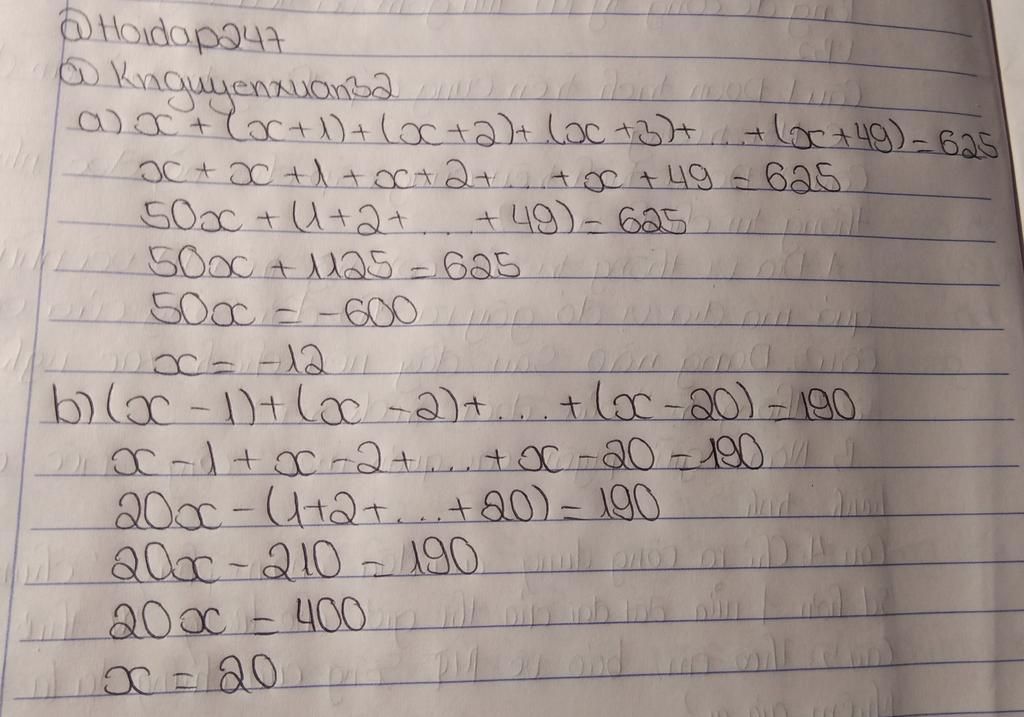 @Hoidap247
@ Knguyenxuan32
a) x + (x+1) + (x+2) + (x+3) + ... + (x+49) = 625
x + x + 1 + x + 2 + ... + x + 49 = 625
50x + (1+2+ ... + 49) = 625
50x + 1125 = 625
50x = -600
x = -12
b) (x - 1) + (x - 2) + ... + (x - 20) = 190
x - 1 + x - 2 + ... + x - 20 = 190
20x - (1+2+ ... + 20) = 190
20x - 210 = 190
20x = 400
x = 20